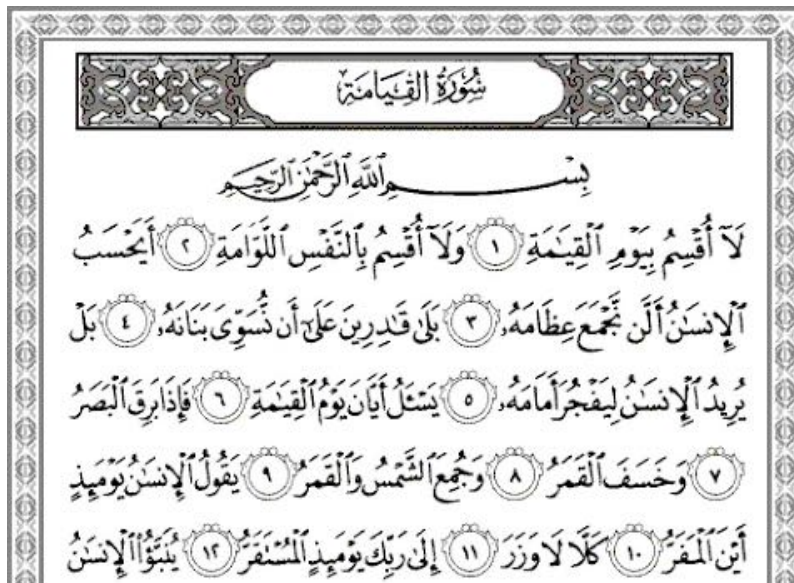 سُورَةُ الْقِيَامَةِ
بِسْمِ ٱللَّهِ ٱلرَّحْمَٰنِ ٱلرَّحِيمِ
لَآ أُقْسِمُ بِيَوْمِ ٱلْقِيَٰمَةِ ١ وَلَآ أُقْسِمُ بِٱلنَّفْسِ ٱللَّوَّامَةِ ٢ أَيَحْسَبُ
ٱلْإِنسَٰنُ أَلَّن نَّجْمَعَ عِظَامَهُۥ ٣ بَلَىٰ قَٰدِرِينَ عَلَىٰٓ أَن نُّسَوِّىَ بَنَانَهُۥ ٤ بَلْ
يُرِيدُ ٱلْإِنسَٰنُ لِيَفْجُرَ أَمَامَهُۥ ٥ يَسْـَٔلُ أَيَّانَ يَوْمُ ٱلْقِيَٰمَةِ ٦ فَإِذَا بَرِقَ ٱلْبَصَرُ
٧ وَخَسَفَ ٱلْقَمَرُ ٨ وَجُمِعَ ٱلشَّمْسُ وَٱلْقَمَرُ ٩ يَقُولُ ٱلْإِنسَٰنُ يَوْمَئِذٍ
أَيْنَ ٱلْمَفَرُّ ١٠ كَلَّا لَا وَزَرَ ١١ إِلَىٰ رَبِّكَ يَوْمَئِذٍ ٱلْمُسْتَقَرُّ ١٢ يُنَبَّؤُا۟ ٱلْإِنسَٰنُ